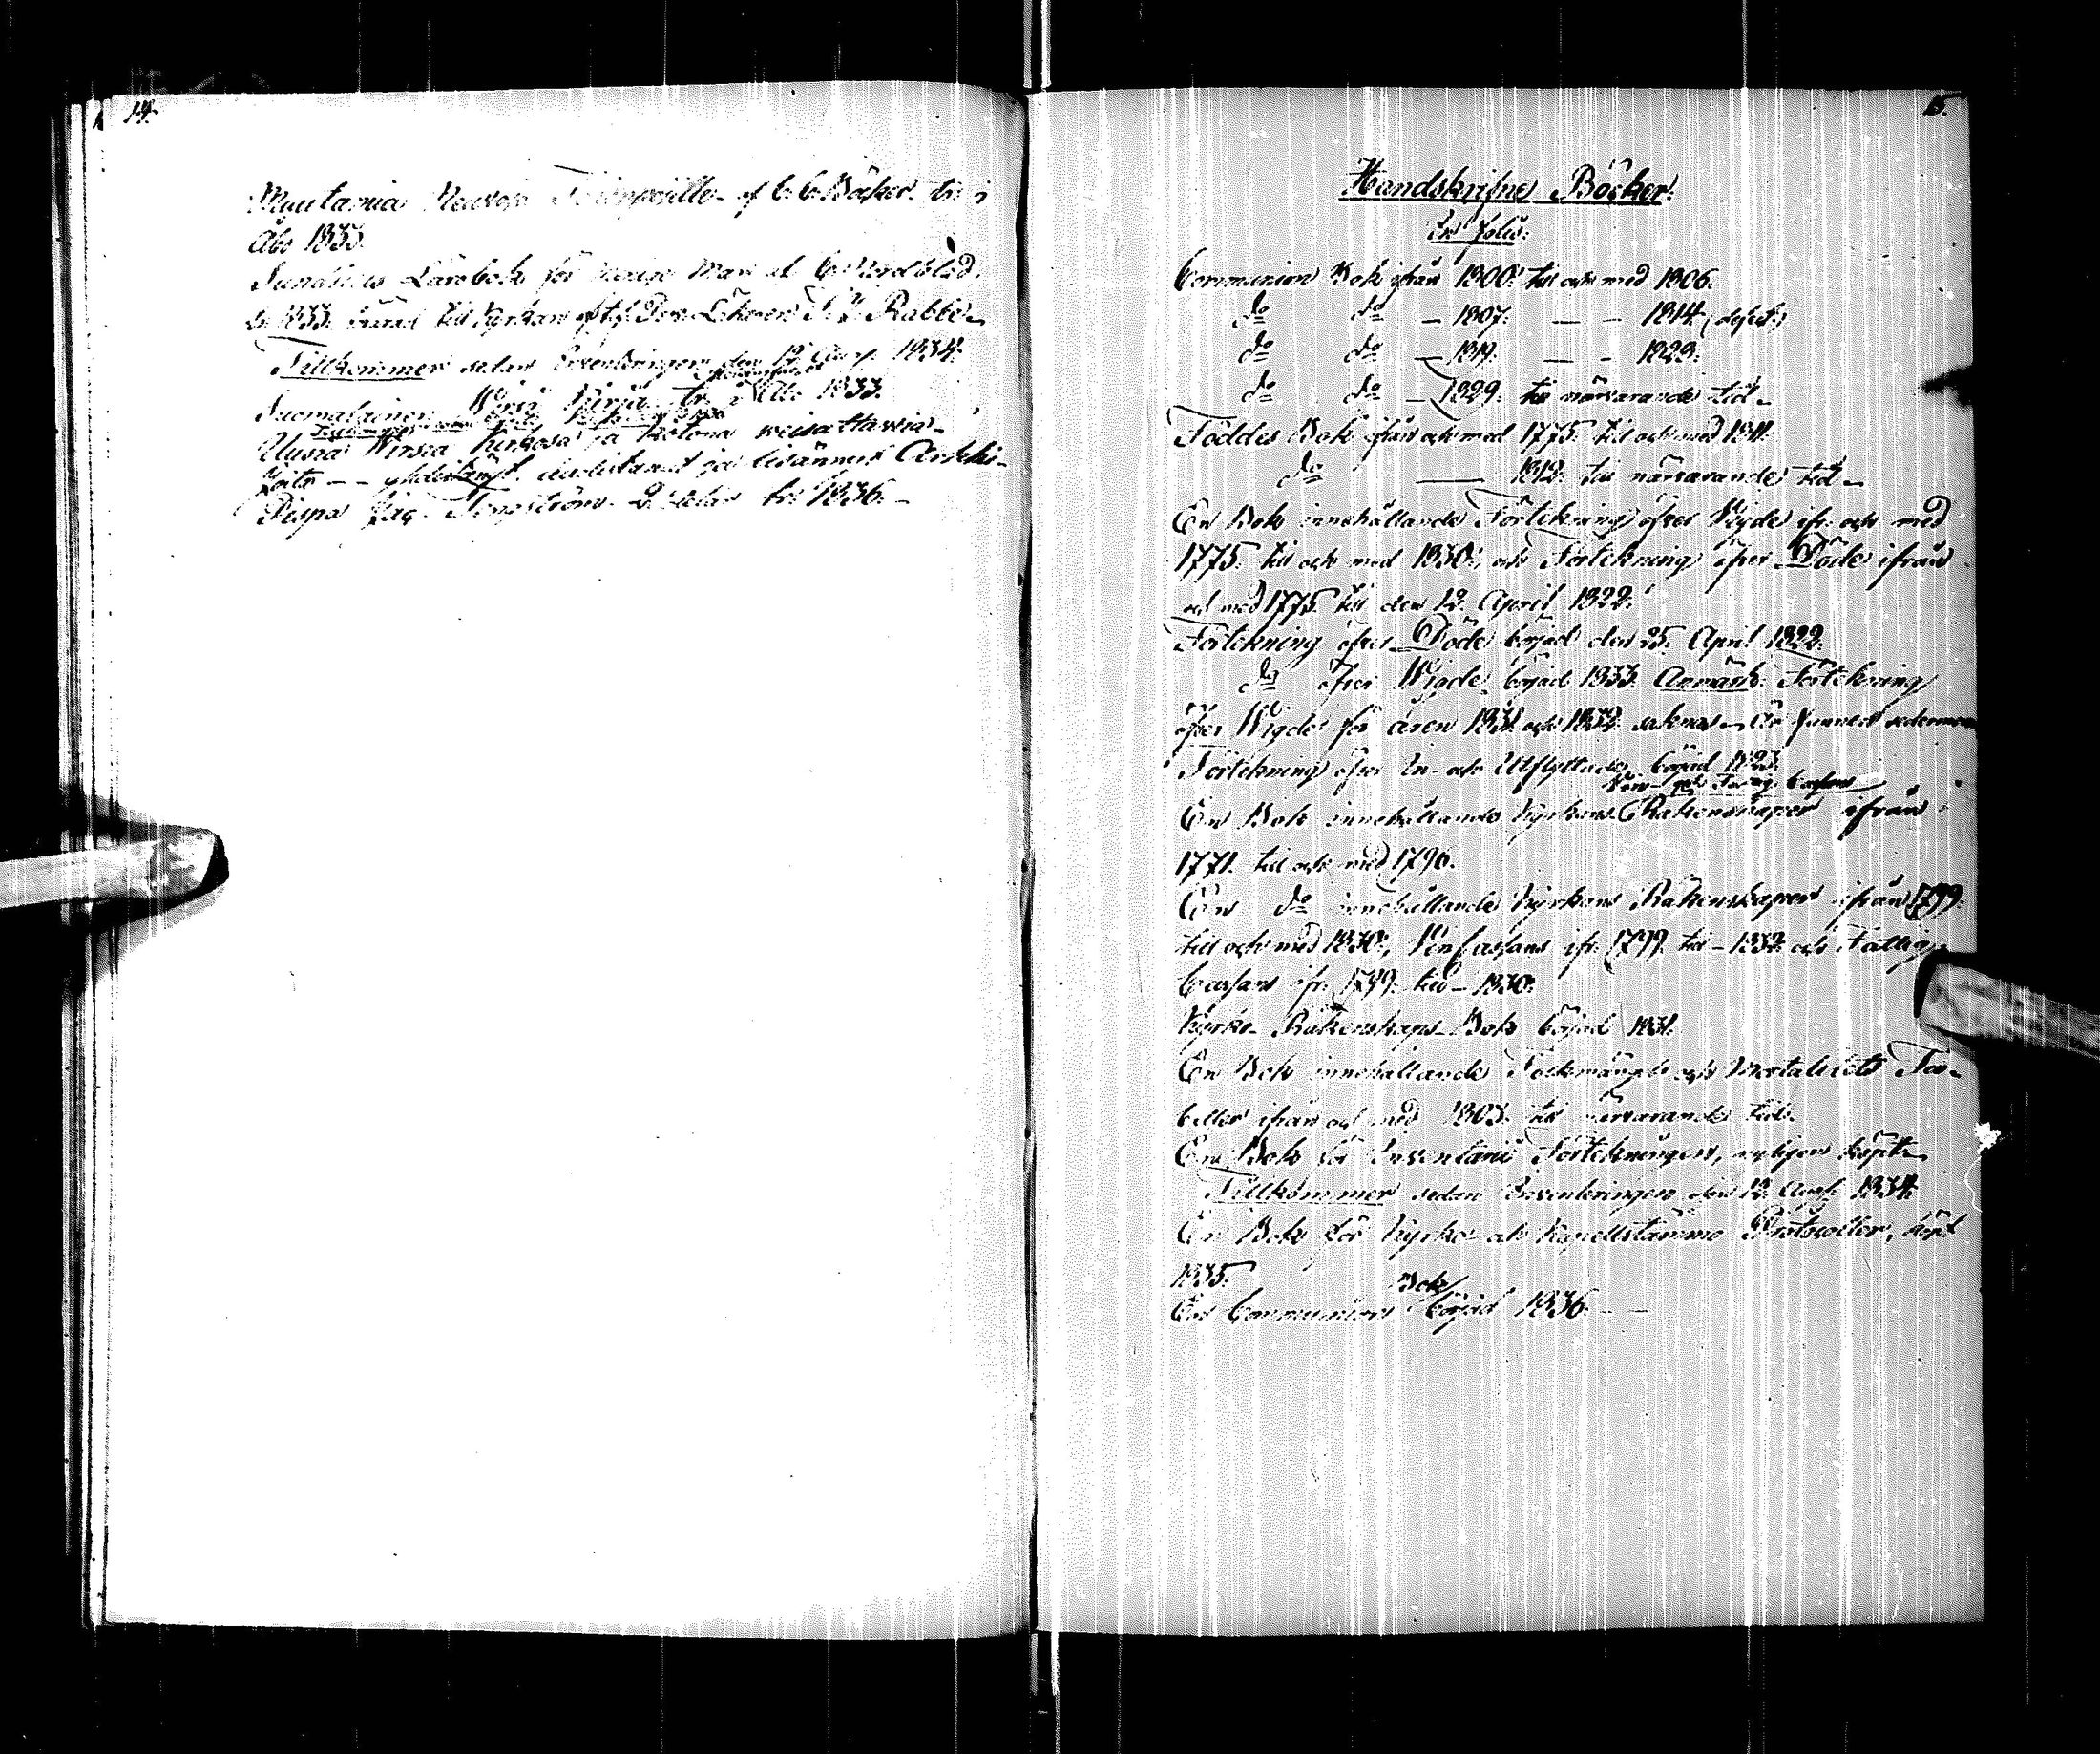 14.
Muutamia Neuvoja af C. C. Böcker tr. i
Åbo 1833.
Lärobok för
1833. till Kyrkan af F. J. Rabbe
Tillkommer sedan Inventeringen den 12 Aug. 1834.
Suomalainen Wirsi Kirja tr. i Åbo 1833.
Uusia Wirsiä Kirkosa ja Kotona weisattawia
koito — — ja Arkki-
Pispa Jac. Tengström. 2 delar tr. 1836. —
15.
Handskrifne Böcker.
In folio:
Communion Bok ifrån 1800. till och med 1806.
do do — 1807. — — 1814. (defect)
do do — 1819. — — 1829.
do do — 1829. till närvarande tid —
Föddes Bok ifrån och med 1775. till och med 1811.
do — 1812. till närvarande tid —
En Bok innehållande Förtekning öfver Vigde ifr. och med
1775. till och med 1830., och Förtekning öfver Döde ifrån
och med 1775. till den 12. April 1822.
Förtekning öfver Döde börjad den 25. April 1822.
do öfver Wigde börjad 1833. Anmärk. Förtekning
öfver Wigde för åren 1831. och 1832. saknas — är funnen
Förtekning öfver In- och Utflyttade börjad 1823.
Vin- och Fattig Cassans
En Bok innehållande Kyrkans Räkenskaper ifrån
1771. till och med 1796.
En do innehållande Kyrkans Räkenskaper ifrån 1799.
till och med 1830., Vin Cassans ifr. 1799. till — 1832. och Fattig-
Cassans ifr. 1799. till — 1830.
Kyrko-Räkenskaps-Bok börjad 1831.
En Bok innehållande Folkmängds och Mortalitets Ta-
beller ifrån och med 1805. till närvarande tid.
En Bok för Inventarii Förtekningen, nyligen köpt.
Tillkommer sedan Inventeringen den 12. Aug. 1834.
En Bok för Kyrko- och Kapellstämmo Protocoller, köpt
1835.
Bok
En Communions börjad 1836. — —